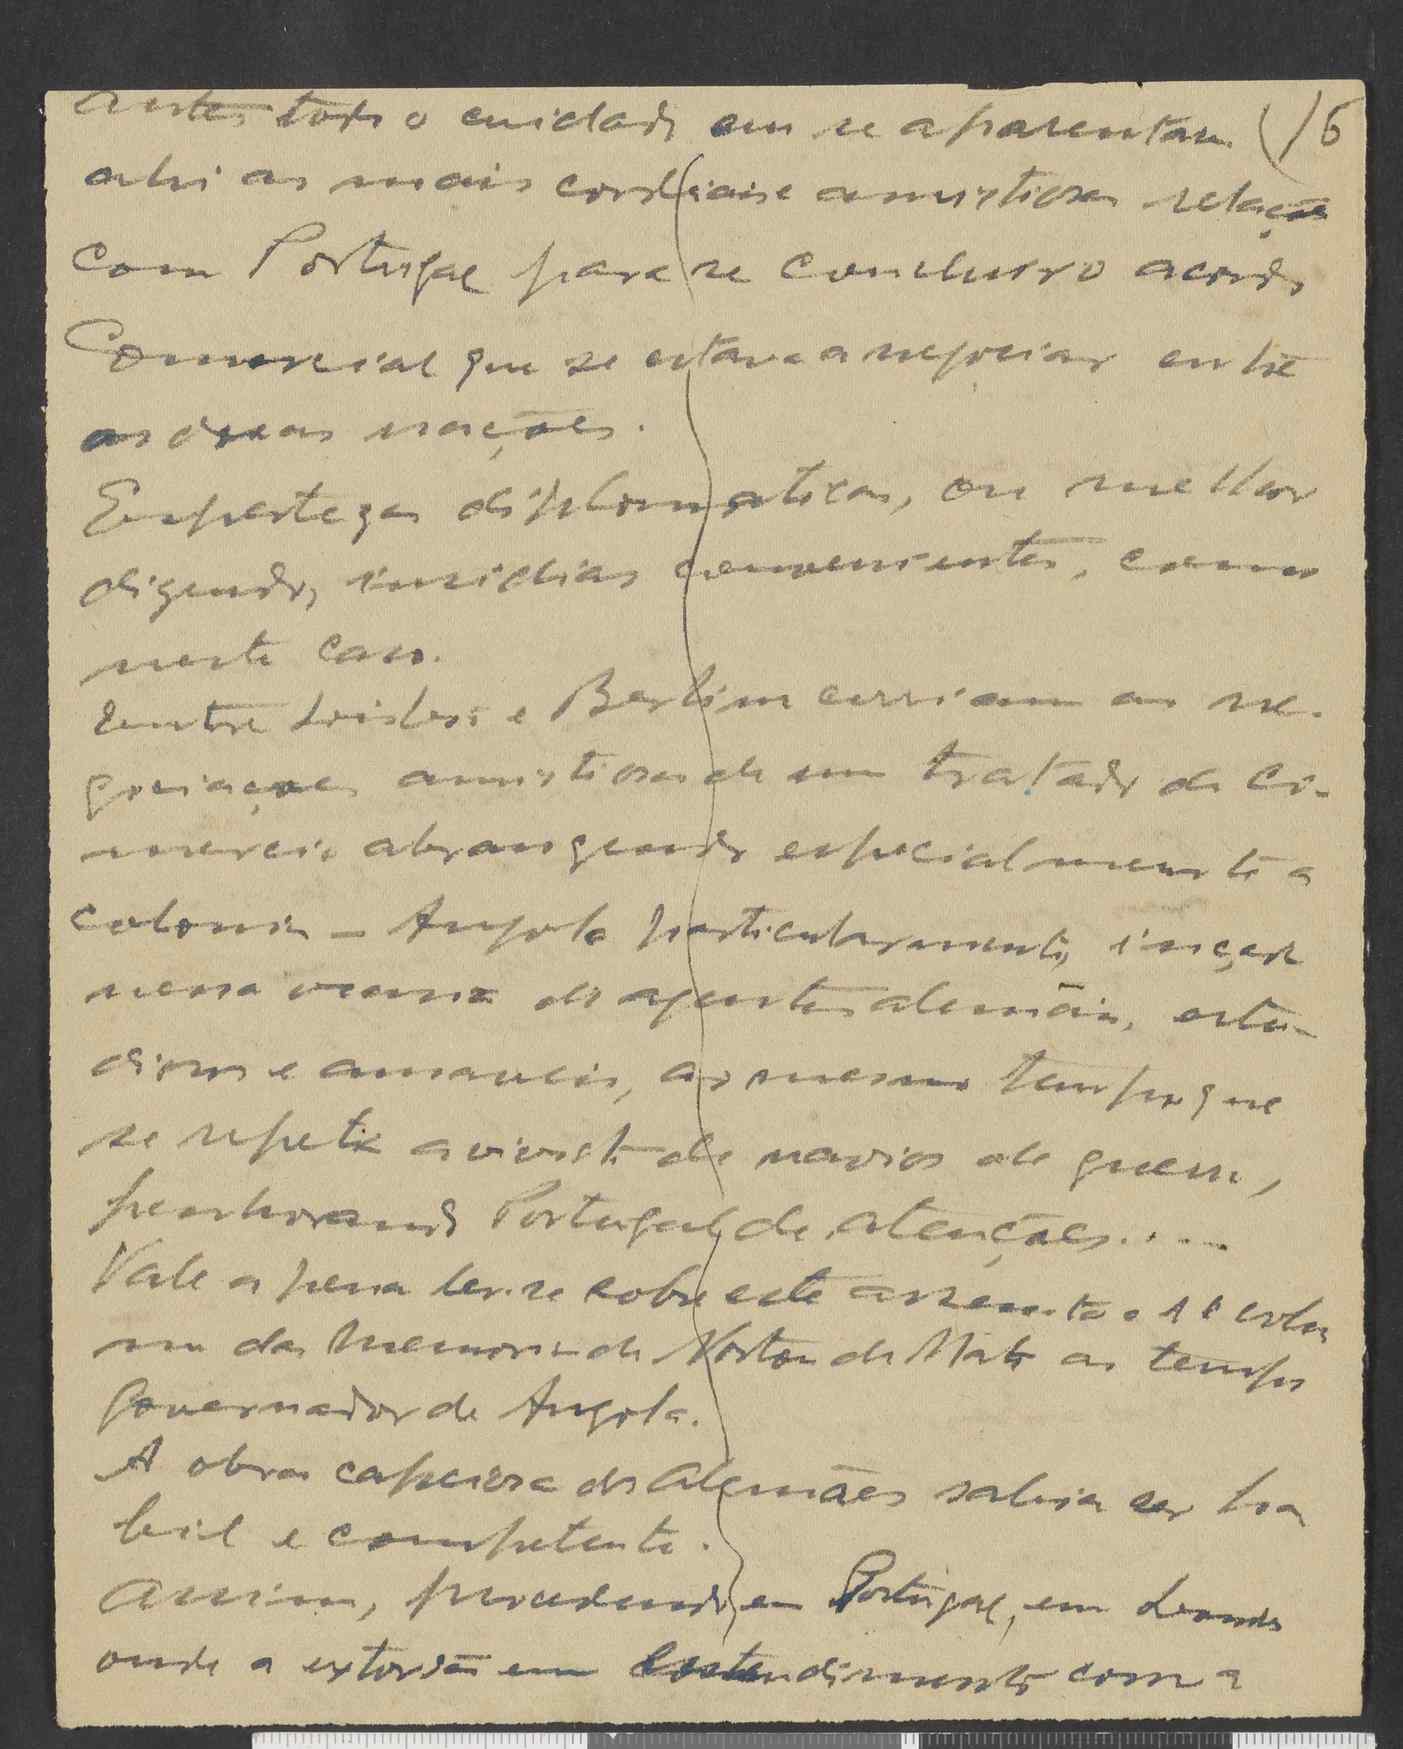 antes todo o cuidado em se aparentarem (16
ahi as mais cordiais e amistiosas relações
com Portugal para se concluir o acordo
Comercial que se estava a negociar entre
as duas nações.
Espertezas diplomaticas, ou melhor
dizendo, insidias convenientes, como
neste caso.
Entre Lisboa e Berlim corriam as ne-
gociações amistiosas de um tratado de co-
mercio abrangendo especialmente a
colonia - Angola particularmente,
nessa de agentes alemãis, estu-
diosos e amaveis, ao mesmo tempo que
se repetia a visista de navios de guerra,
penhorando Portugal de atenções....
Vale a pena ler-se sobre este assunto o 1º volu
me da Memoria de Norton de Matos ao tempo
Governador de Angola.
A obra capciosa dos alemães sabia ser ha
bil e competente.
Assim, procedendo em Portugal, em
onde a extorsão em entendimento com a